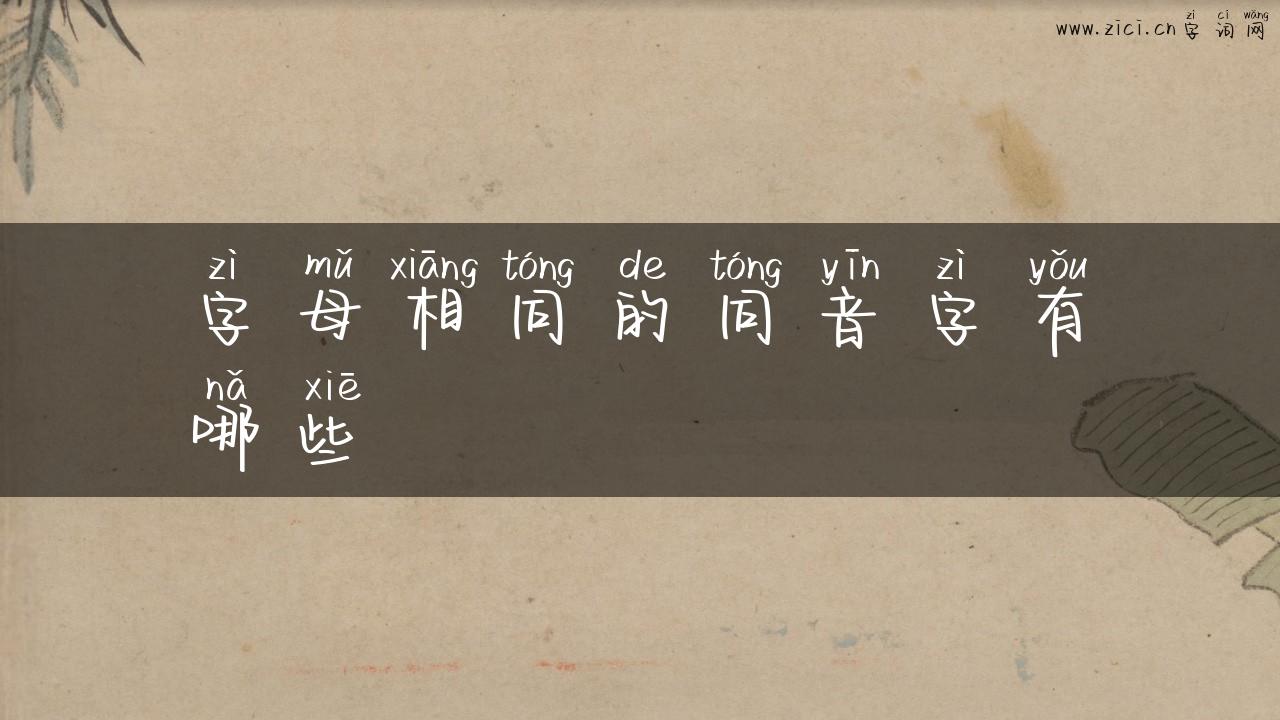 zì cí wǎng
www.zici.cn 字词网
zì mǔ xiāng tóng de tóng yīn zì yǒu
字母相同的同音字有
nǎ xiē
哪些